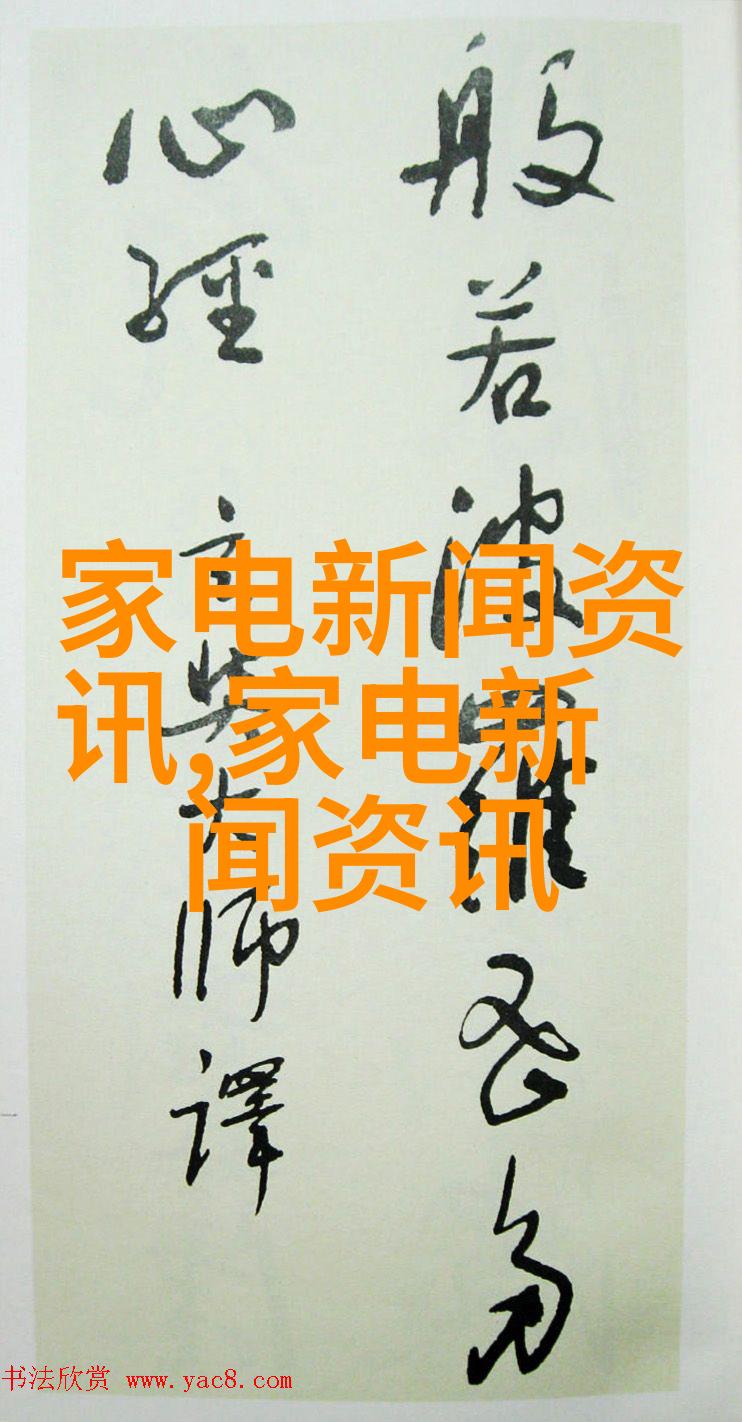 般若波羅密多
心經 玄奘大師譯
家电新闻资
讯,家电新
闻资讯
书法欣赏 www.yac8.com